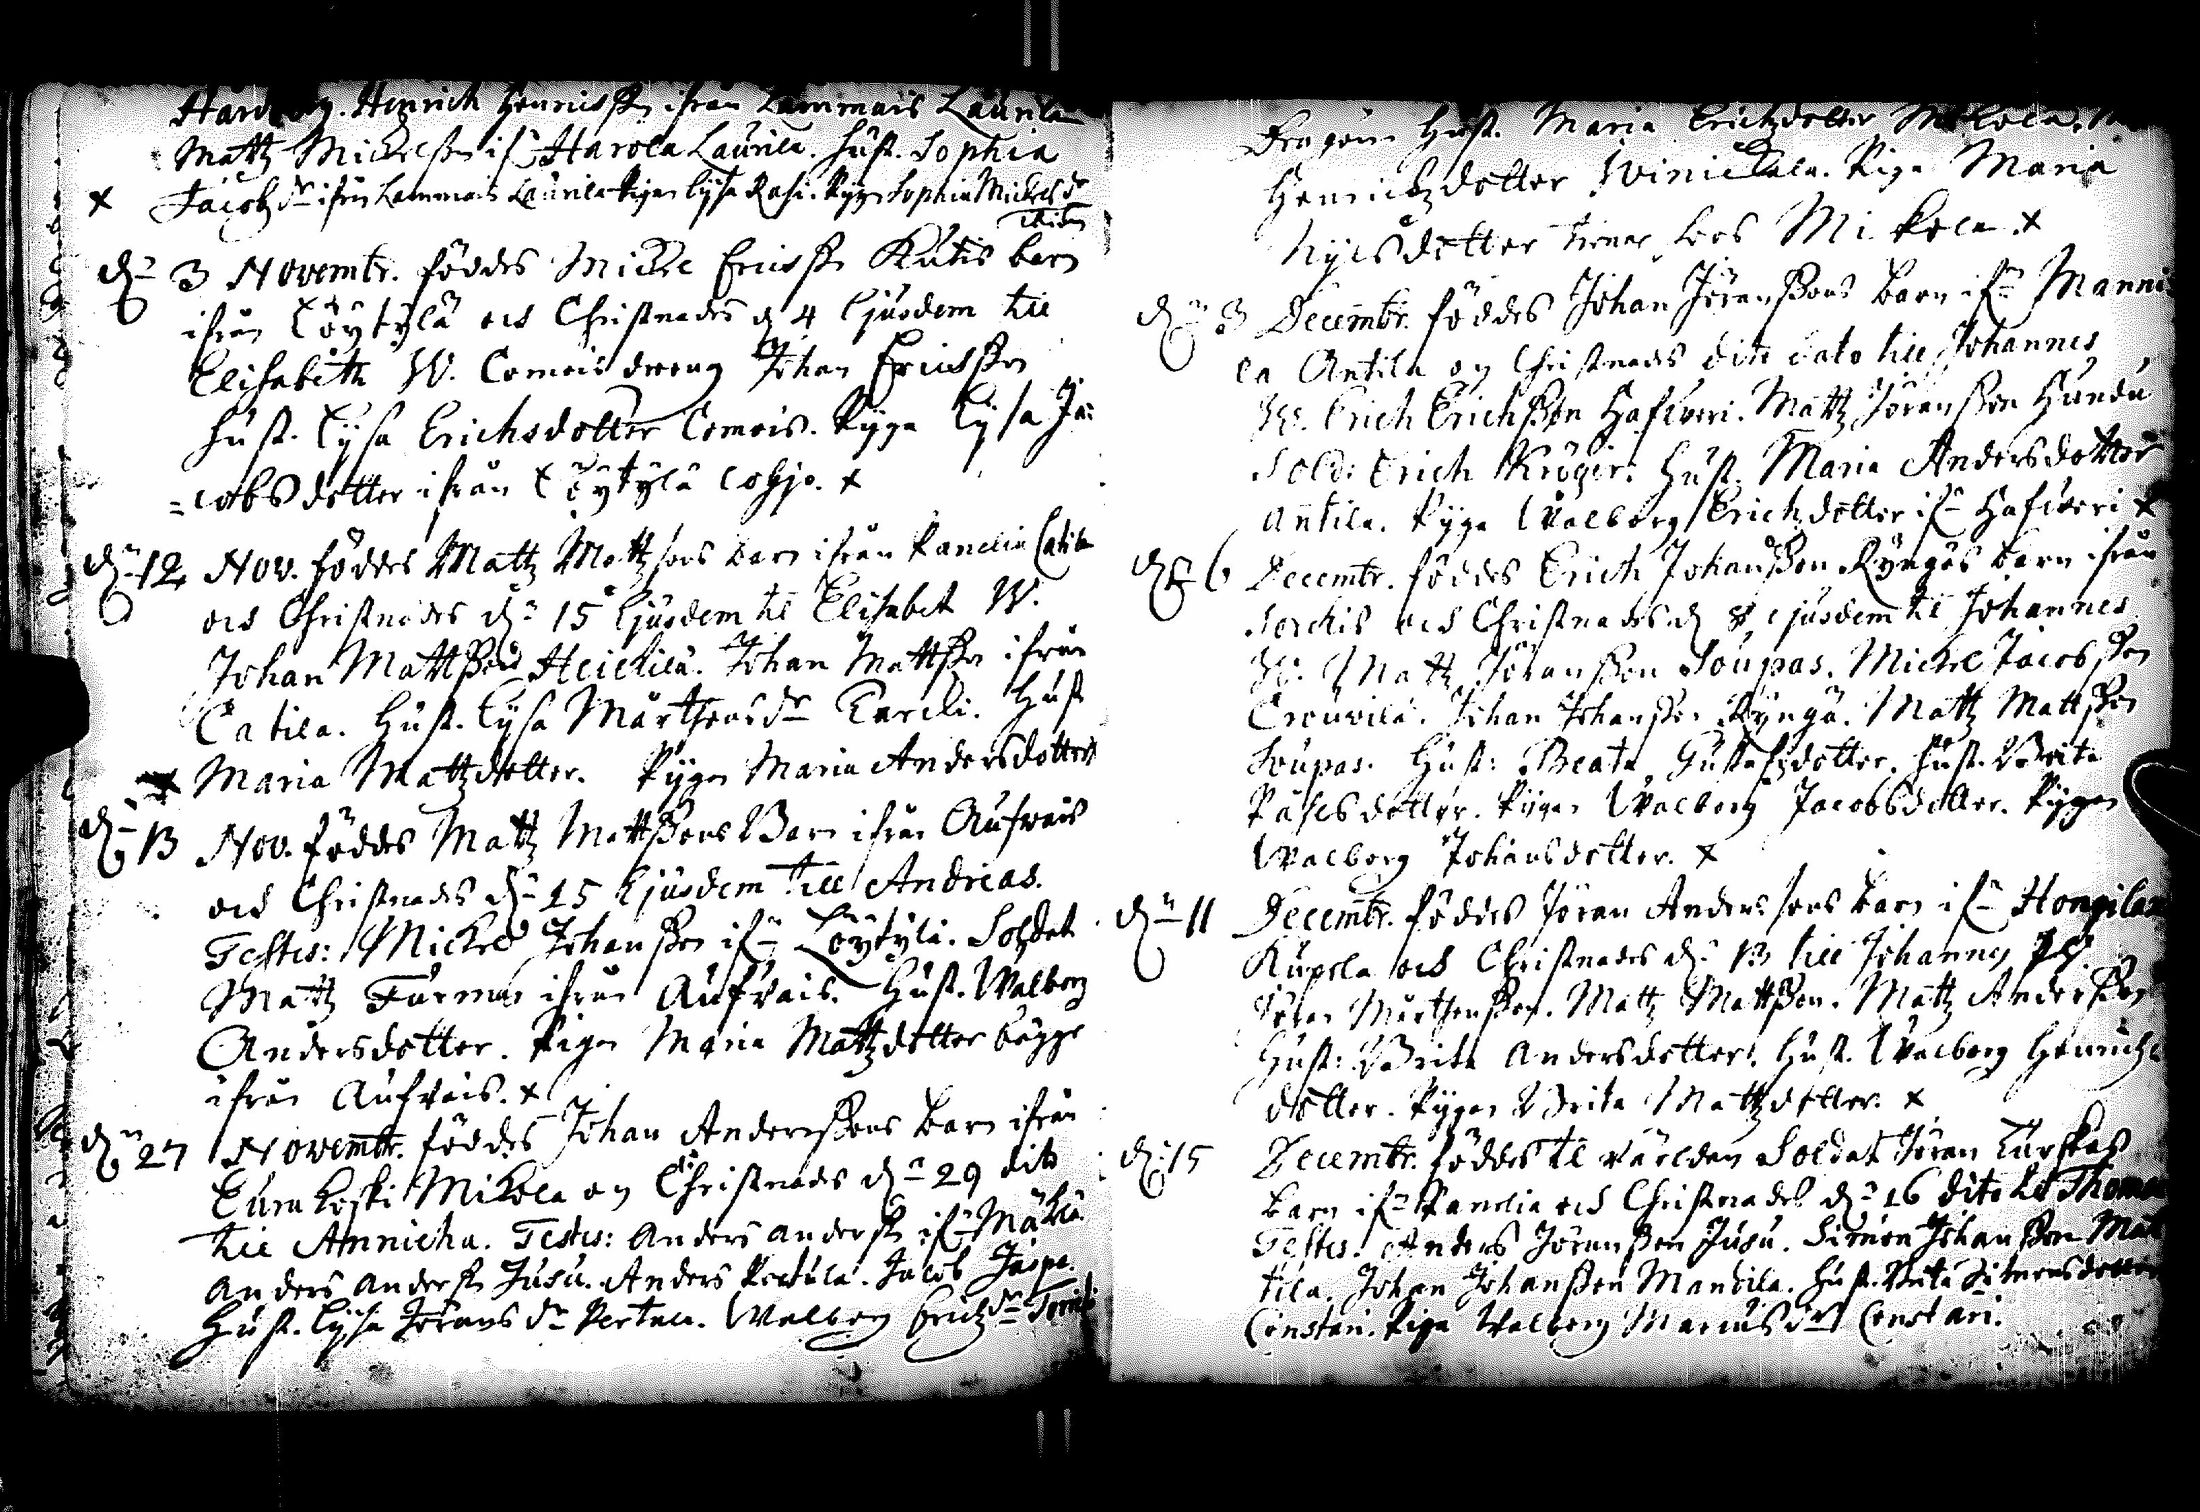 Henrich Henricsson ifrån Lammais Laurila
Mattz Mickelsson if: Harola Laurila. Hust. Sophia
x Jacobz dr ifrån Lammais Laurila Pigan Lysa Rasi. Pyga Sophia Mickels dr
dn 3 Novembr. föddes Michel Ericsson Kutis barn
ifrån Löytylä och Christnades d 4 Ejusdem till
Elisabeth W. Comois dreng Johan Ericsson
Hust. Lysa Erichsdotter Comois. Pyga Lysa Ja=
=cobsdotter ifrån Löytylä Lohjo. x
dn 12 Nov. föddes Mattz Mattzsons barn ifrån Panelia Catila
och Christnades dn 15 Ejusdem til Elisabet W.
Johan Mattsson Heickilä. Johan Mattsson ifrån
Catila. Hust. Lysa Mårthens dr Karcki. Hust
x Maria Mattzdotter. Pygan Maria Andersdotter
dn 13 Nov. föddes Mattz Mattssons Barn ifrån Aufvais
och Christnades dn 15 Ejusdem till Andreas.
Testes: Mickel Johansson ifn Löytylä. Soldat
Mattz Furman ifrån Aufvais. Hust. Walborg
Andersdotter. Pigan Maria Mattzdotter bägge
ifrån Aufvais. x
dn 27 Novembr. föddes Johan Anderssons barn ifrån
Eura koski Mikola och Christnades dn 29 dito
till Annicka. Testes: Anders anderss ifn Mäkilä
Anders anderss Jusu. Anders Pertula. Jacob Jaspa.
Hust. Lysa Jörans dr Pertula. Walborg Erichz dr
Dragoun Hust. Maria Erichzdotter Mikola.
Henrichzdotter Winickala. Piga Maria
Nyelsdotter tienar hoos Mikola. x
dn 3 Decembr. föddes Johan Jöranssons barn ifn Manni=
la Antila och Christnades dito dato till Johannes
W. Erich Erichsson Hafweri. Mattz Jöransson Hundu
Sold: Erich Kröger. Hust. Maria Andersdotter
Antila. Pyga Walborg Erichzdotter ifn Hafweri x
dn 6 Decembr. föddes Erich Johansson Ryngös barn ifrån
Sorckis och Christnades d 8 ejusdem til Johannes
W. Mattz Jöransson Soupas. Michel Jacobsson
Crouwila. Johan Johansson Ryngö. Mattz Mattsson
Soupas. Hust: Beata Gustafzdotter. Hust. Brita
Påhlsdotter. Pigan Walborg Jacobsdotter. Pygan
Walborg Johansdotter. x
dn 11 Decembr. föddes Jöran Anderssons barn ifn Hongila
Kupola och Christnades dn 13 till Johannes W.
Jöran Mårthensson. Mattz Mattsson. Mattz Andersson
Hust: Brita Andersdotter. Hust. Walborg Henrichz
dotter. Pygan Brita Mattzdotter. x
dn 15 Decembr. föddes til världen Soldat Jöran Turskas
barn ifn Panelia och Christnades dn 16 dito til Thomas
Testes. Anders Jöransson Jusu. Simon Johansson Man
tila. Johan Johansson Mantila. Hust. Brita Simonsdotter
Constari. Piga Walborg Marcus dr Constari.